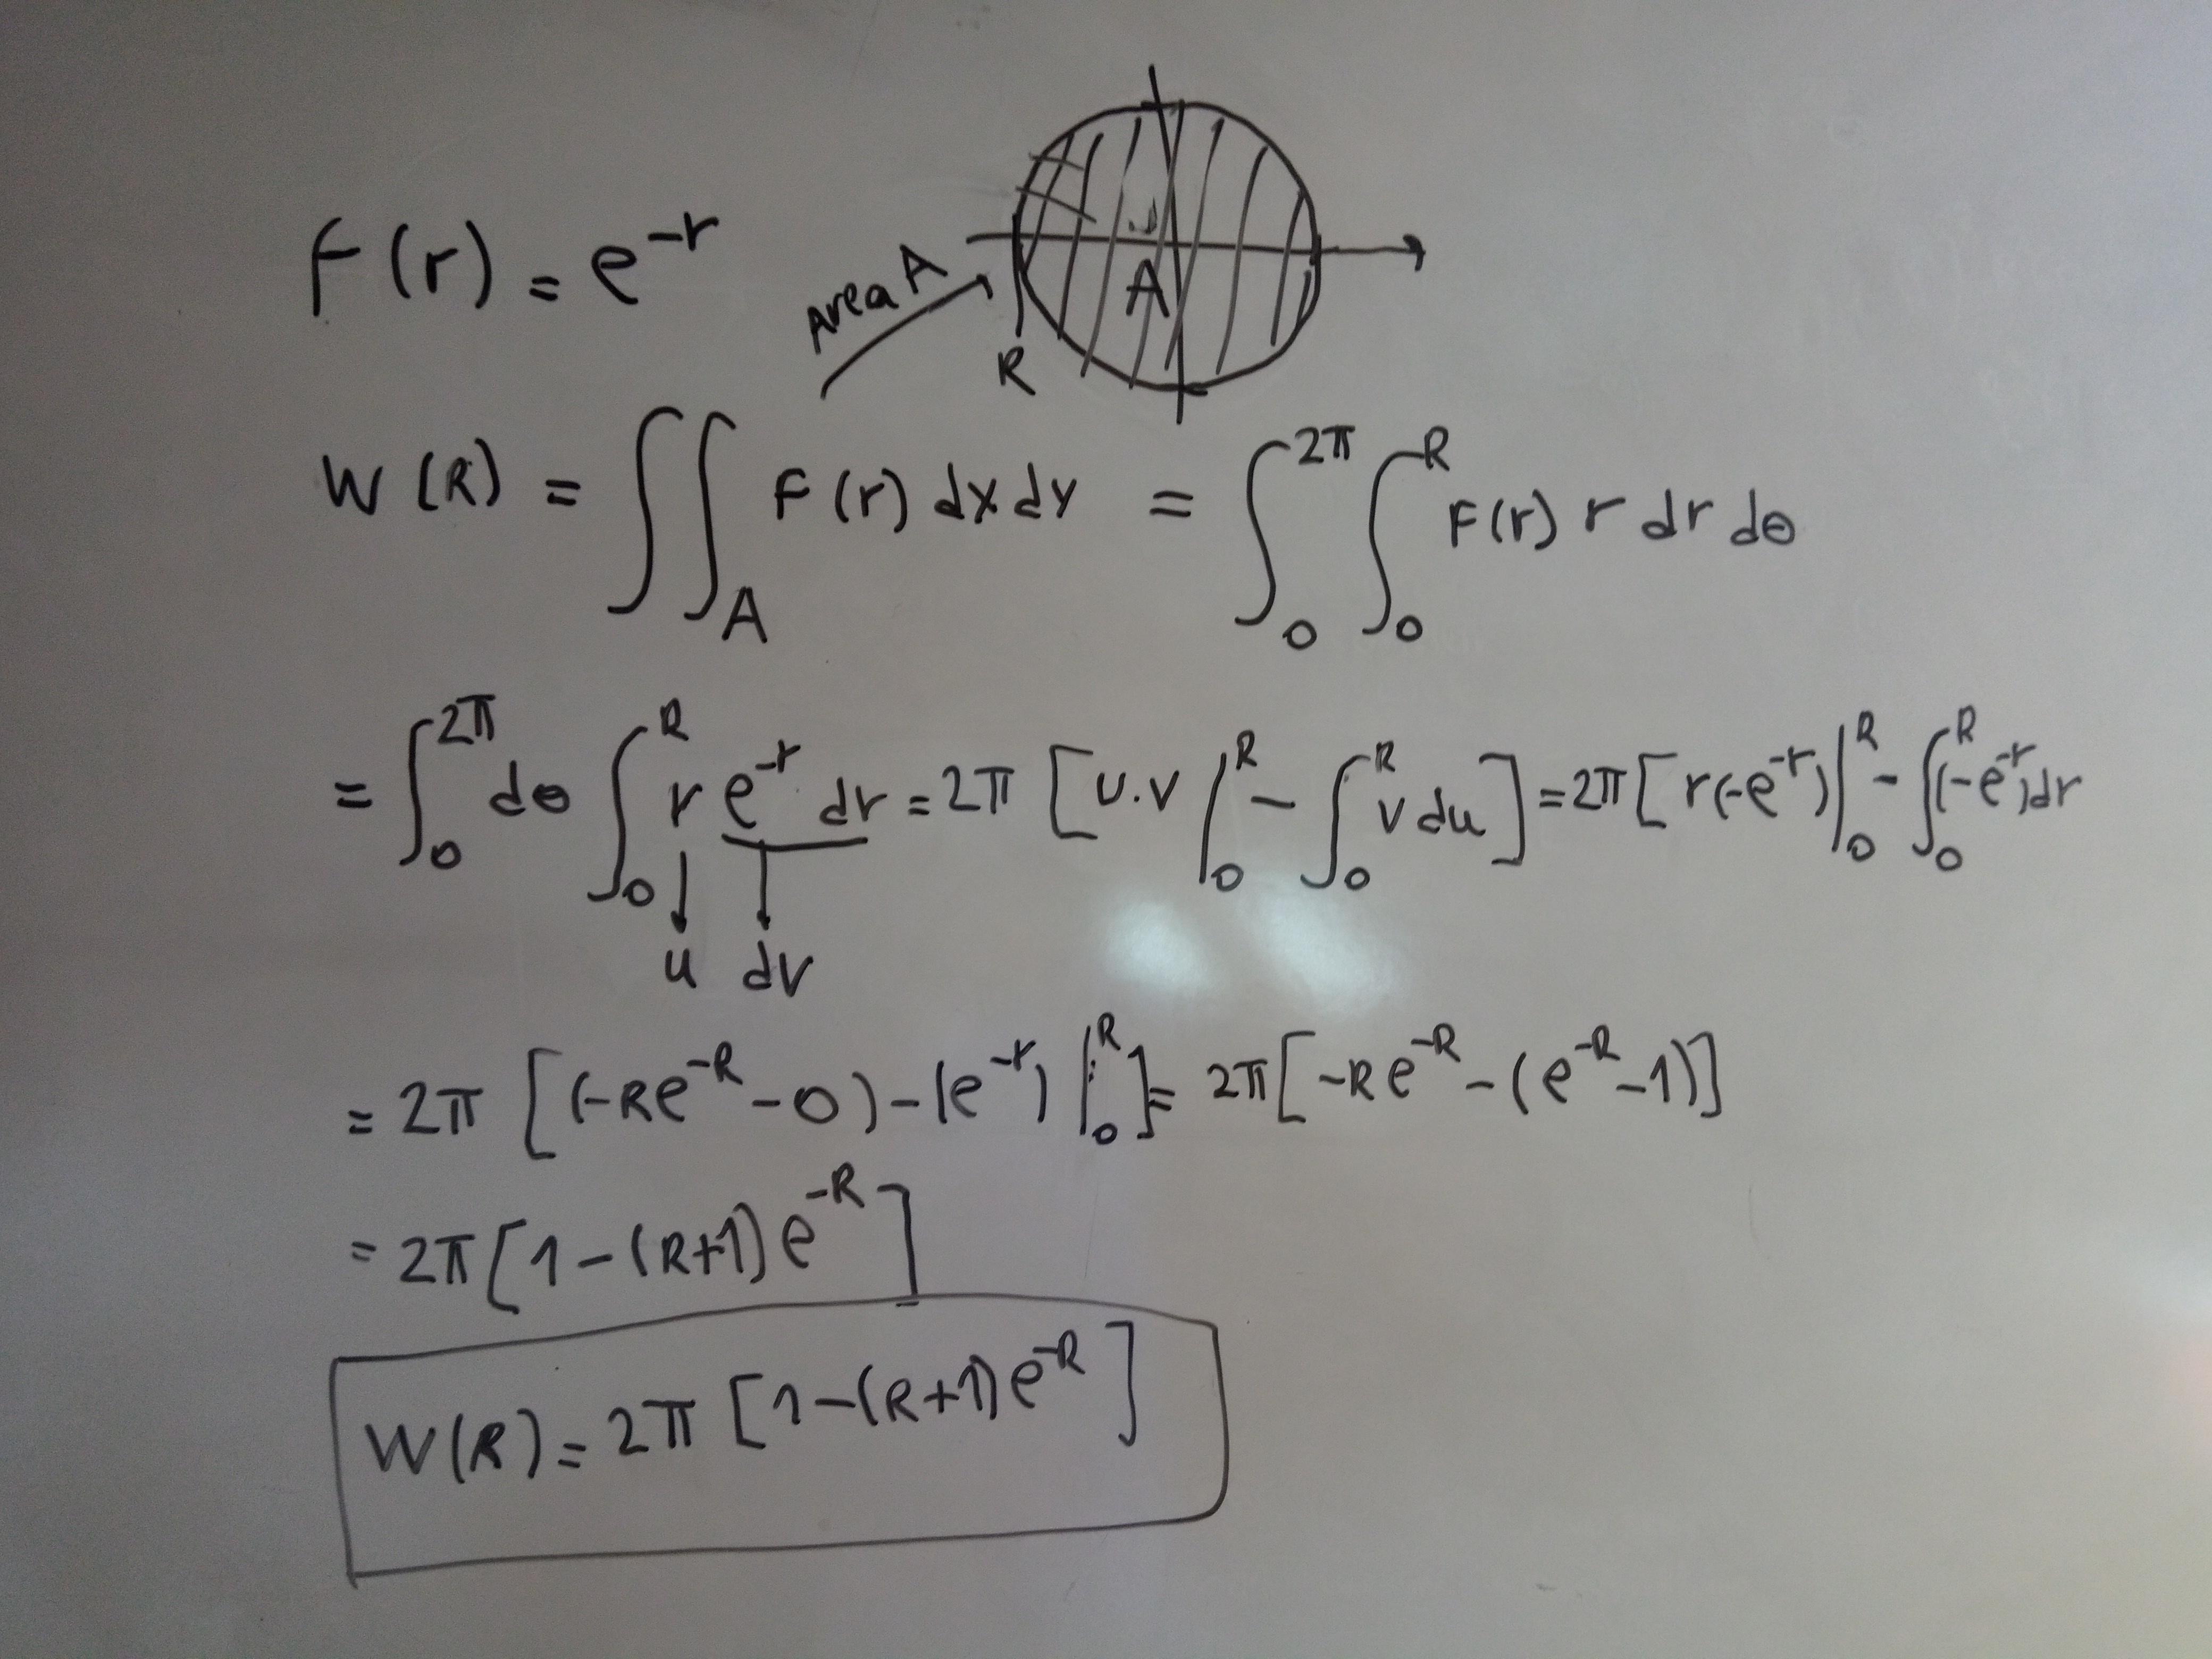 F(r) = e^-r
Area A
A
R
W(R) = ∬_A F(r) dx dy = ∫_0^2π ∫_0^R F(r) r dr dθ
= ∫_0^2π dθ ∫_0^R r e^-r dr = 2π [u.v |_0^R - ∫_0^R v du] = 2π [r(-e^-r) |_0^R - ∫_0^R (-e^-r) dr
u dv
= 2π [(-Re^-R - 0) - (e^-r) |_0^R] = 2π [-Re^-R - (e^-R - 1)]
= 2π [1 - (R+1) e^-R]
W(R) = 2π [1 - (R+1) e^-R]